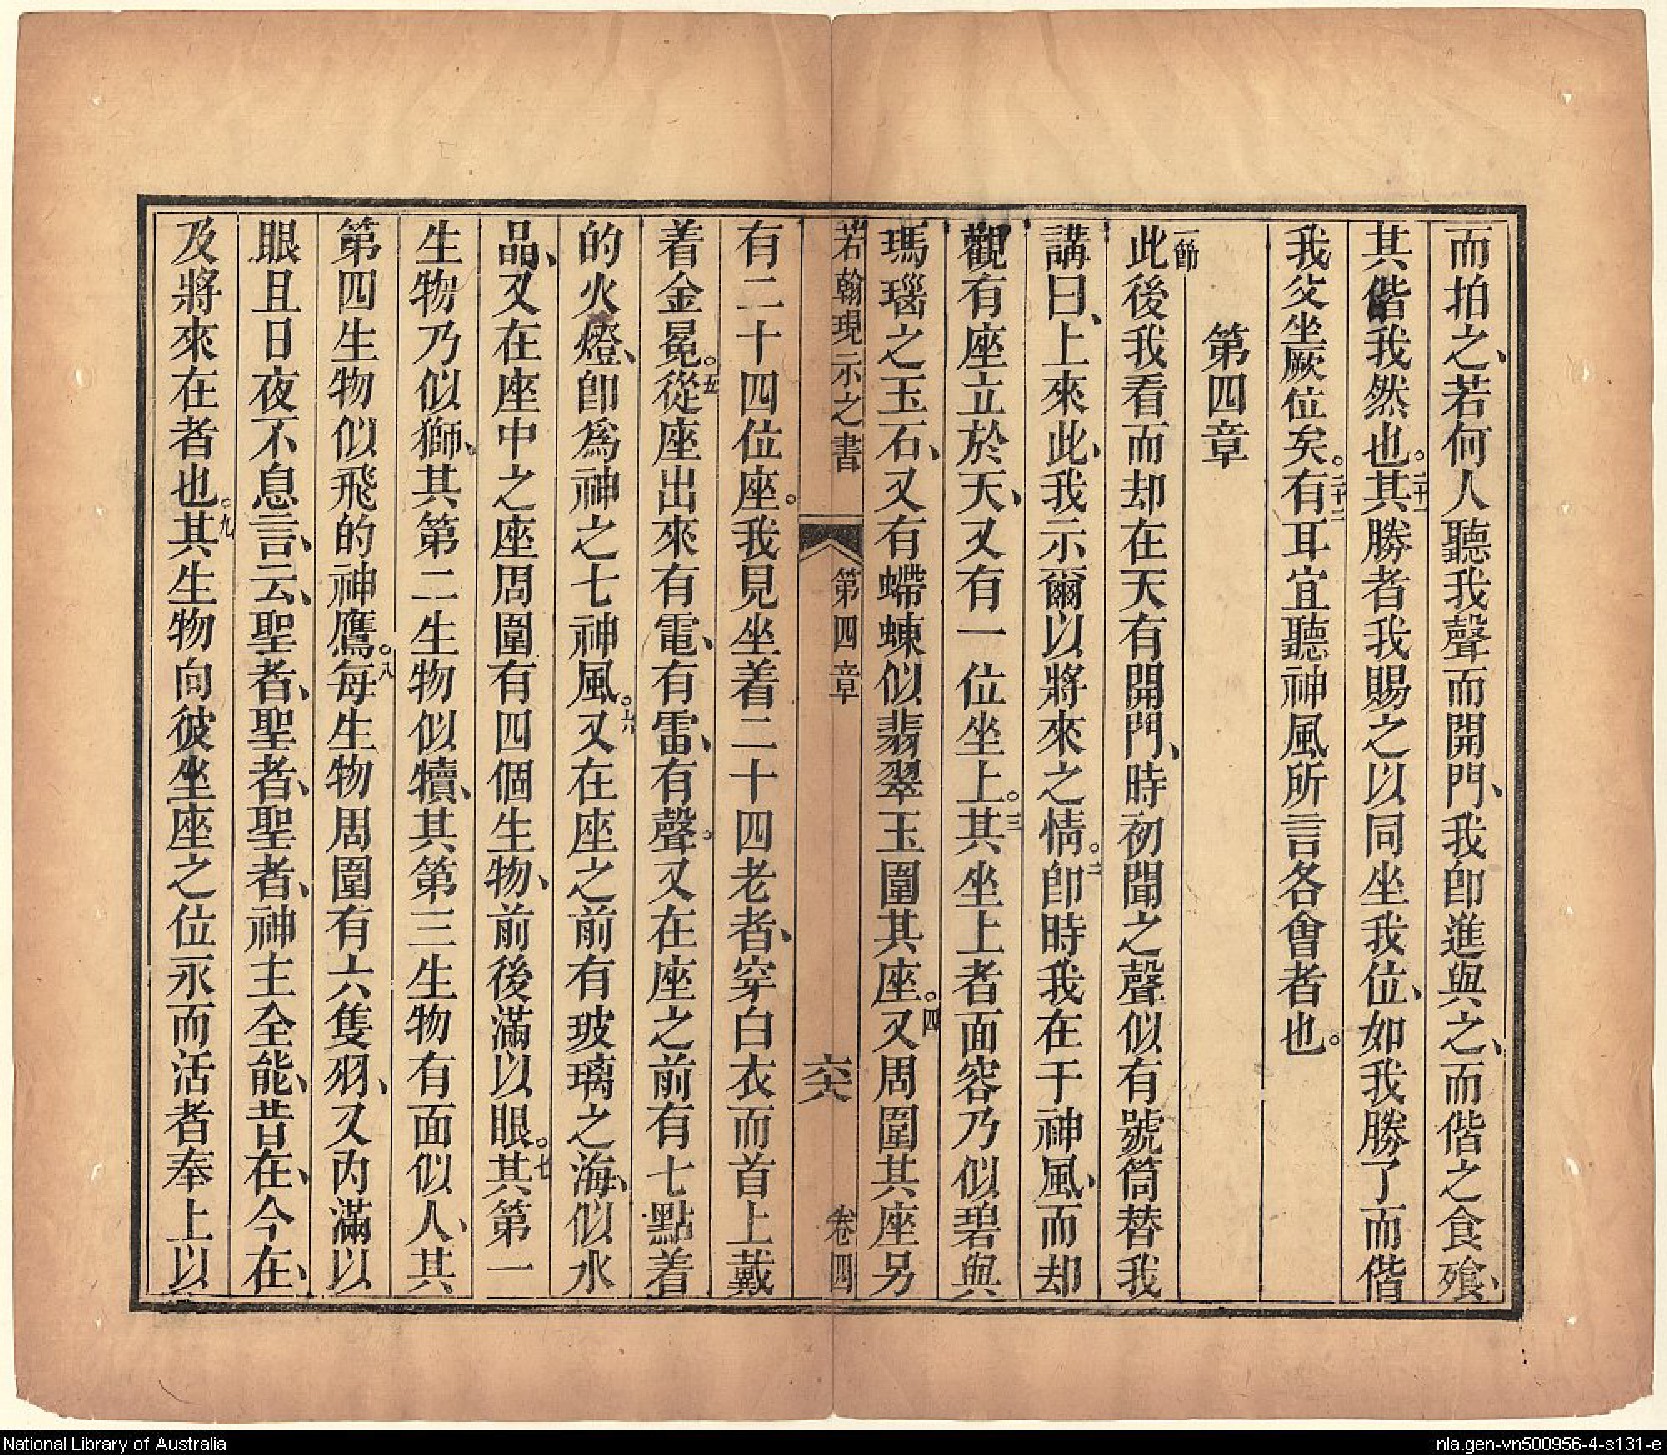 而拍之、若何人聽我聲而開門、我即進與之、而偕之食飱、
其偕我然也。二十一其勝者我賜之以同坐我位、如我勝了而偕
我父坐厥位矣。二十二有耳宜聽神風所言各會者也。
第四章
一節此後我看而却在天有開門、時初聞之聲似有號筒替我
講曰、上來此、我示爾以將來之情。二即時我在于神風、而却
觀有座立於天、又有一位坐上。三其坐上者面容乃似碧與
瑪瑙之玉石、又有螮蝀似翡翠玉圍其座。四又周圍其座另
若翰現示之書 第四章 六六 卷四
有二十四位座。我見坐着二十四老者、穿白衣而首上戴
着金冕。五從座出來有電、有雷、有聲。又在座之前有七點着
的火燈、即為神之七神風。六又在座之前有玻璃之海、似水
晶、又在座中之座周圍有四個生物、前後滿以眼。七其第一
生物乃似獅、其第二生物似犢、其第三生物有面似人、其
第四生物似飛的神鷹。八每生物周圍有六隻羽、又內滿以
眼且日夜不息言、云、聖者、聖者、聖者、神主全能、昔在、今在、
及將來在者也。九其生物向彼坐座之位永而活者奉上以
National Library of Australia
nla.gen-vn500956-4-s131-e